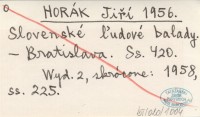 HORÁK Jiří 1956.
Slovenské ľudové balady.
— Bratislava. Ss. 420.
Wyd. 2, skrócone: 1958,
ss. 225.